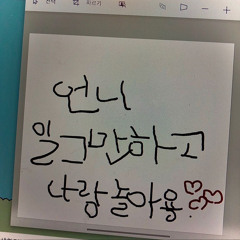 언니
일그만하고
나랑놀아용